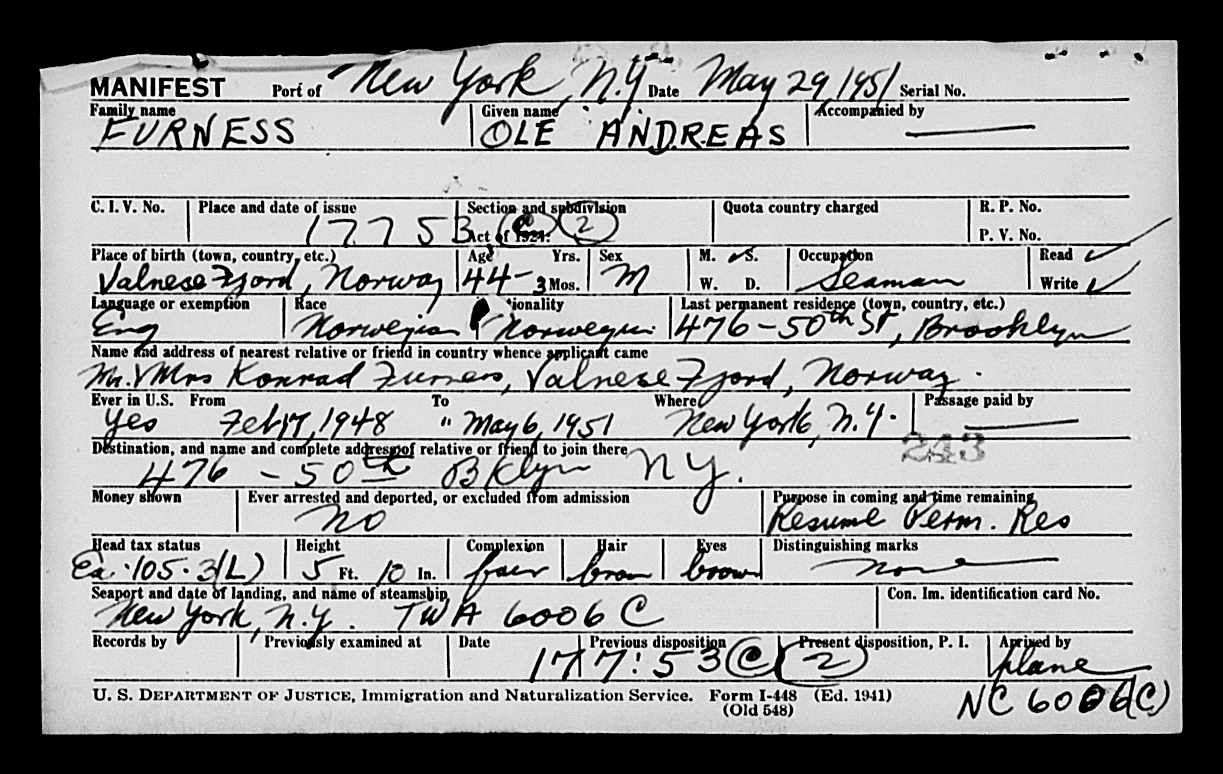 MANIFEST Port of New York, N.Y. Date May 29, 1951 Serial No.
Family name Given name Accompanied by
FURNESS OLE ANDREAS —
C. I. V. No. Place and date of issue Section and subdivision Quota country charged R. P. No.
177 53 (C) (2) Act of 1924. P. V. No.
Place of birth (town, country, etc.) Age Yrs. Sex M. ✓ S. Occupation Read ✓
Valnese Fjord, Norway 44 - 3 Mos. M W. D. Seaman Write ✓
Language or exemption Race Nationality Last permanent residence (town, country, etc.)
Eng Norwegian Norwegian 476-50th St, Brooklyn
Name and address of nearest relative or friend in country whence applicant came
Mr. & Mrs Konrad Furness, Valnese Fjord, Norway.
Ever in U.S. From To Where Passage paid by
Yes Feb 17, 1948 " May 6, 1951 New York, N.Y. —
243
Destination, and name and complete address of relative or friend to join there
476 - 50th Bklyn N Y.
Money shown Ever arrested and deported, or excluded from admission Purpose in coming and time remaining
No Resume Perm. Res
Head tax status Height Complexion Hair Eyes Distinguishing marks
Ex. 105.3(L) 5 Ft. 10 In. fair brown brown none
Seaport and date of landing, and name of steamship Con. Im. identification card No.
New York, N.Y. TWA 6006 C
Records by Previously examined at Date Previous disposition Present disposition, P. I. Arrived by
177:53 (C) (2) plane
U. S. DEPARTMENT OF JUSTICE, Immigration and Naturalization Service. Form I-448 (Ed. 1941)
(Old 548)
NC 6006(C)